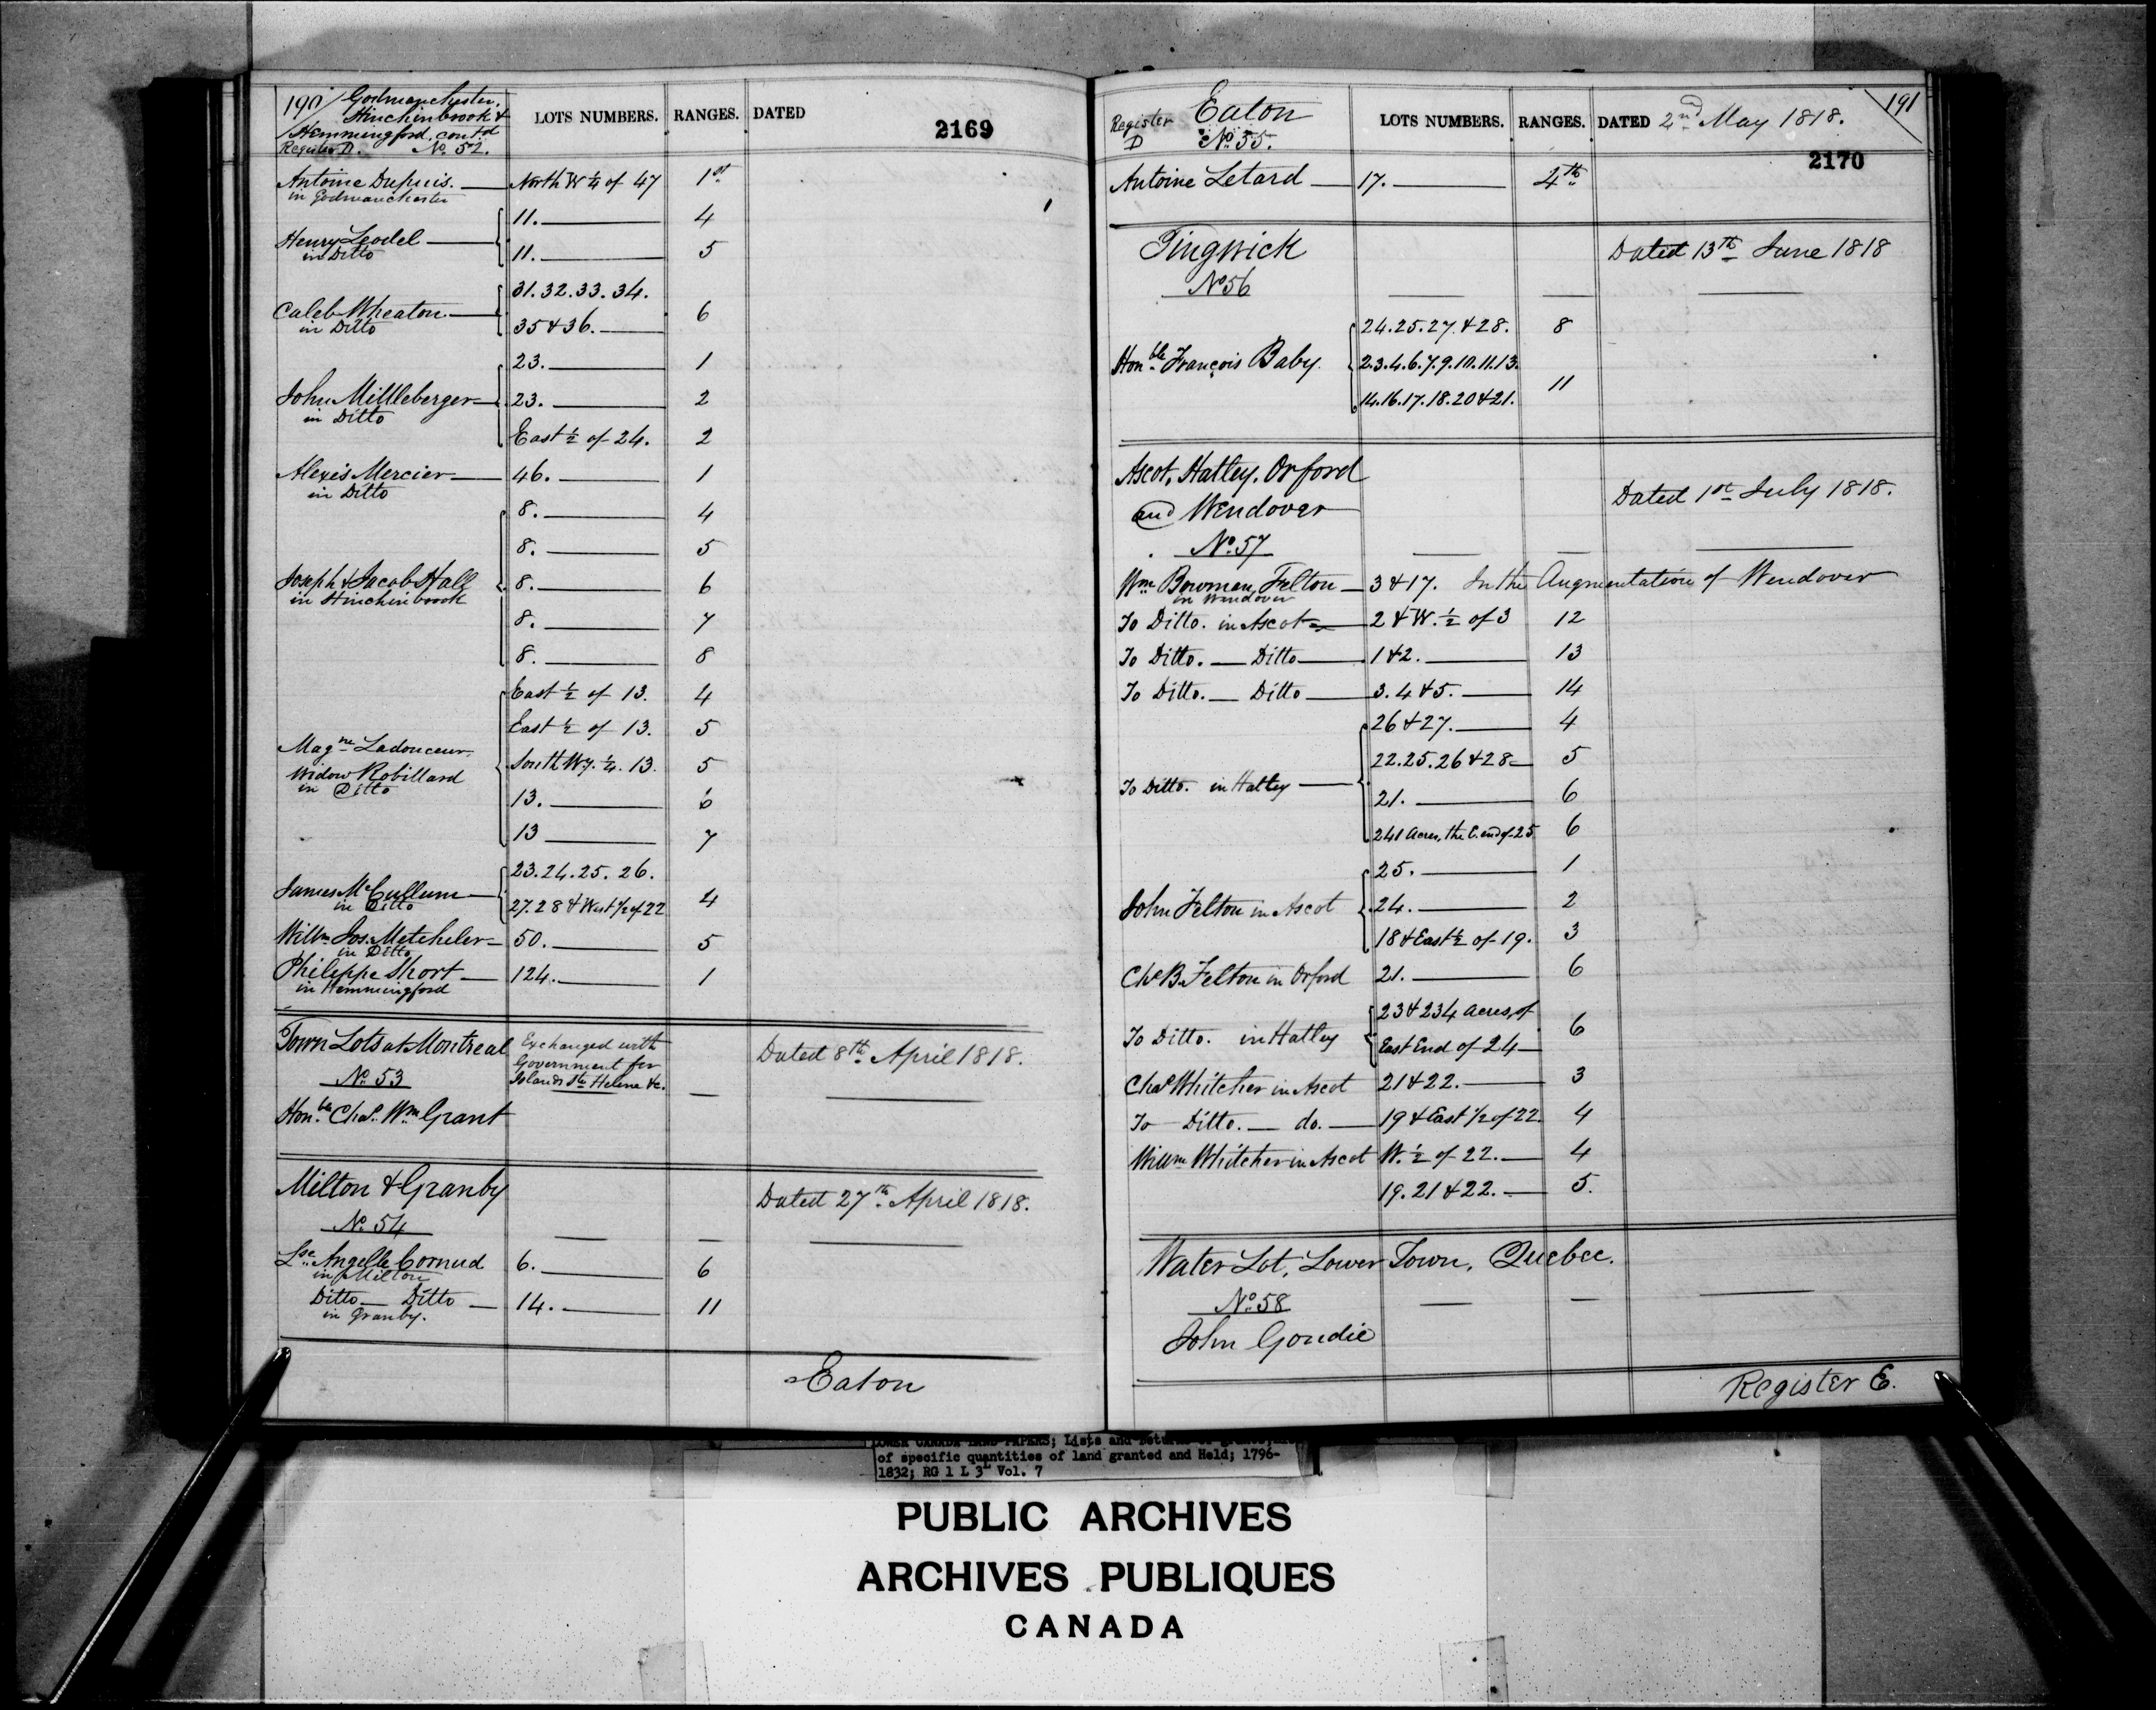 190 Godmanchester,
Hinchinbrook &
Hemmingford, cont.d
Register D. No. 52.
LOTS NUMBERS. RANGES. DATED
2169
Antoine Dupuis. North W ¼ of 47 1st
in Godmanchester
11. 4
Henry Leodel
in Ditto
11. 5
31. 32. 33. 34.
Caleb Wheaton 6
in Ditto
35 & 36.
23. 1
John Mittleberger 23. 2
in Ditto
East ½ of 24. 2
Alexis Mercier 46. 1
in Ditto
8. 4
8. 5
Joseph & Jacob Hall 8. 6
in Hinchinbrook
8. 7
8. 8
East ½ of 13. 4
East ½ of 13. 5
Mag.ne Ladouceur,
Widow Robillard South Wy. ¼. 13. 5
in Ditto
13. 6
13 7
23. 24. 25. 26.
James McCullum 4
in Ditto
27. 28 & West 1/2 of 22
Willm Jos. Metcheler 50. 5
in Ditto
Philippe Short 124. 1
in Hemmingford
Town Lots at Montreal Exchanged with
Government for
Islands Ste Helene &c.
Dated 8th April 1818.
No. 53
Hon.ble Chas. Wm Grant
Milton & Granby
Dated 27th April 1818.
No. 54
Lse. Angelle Cornud 6. 6
in Milton
Ditto Ditto 14. 11
in Granby.
Eaton
Register D
Eaton
No. 55.
LOTS NUMBERS. RANGES. DATED 2nd May 1818.
191
2170
Antoine Letard 17. 4th
Tingwick Dated 13th June 1818
No 56
24. 25. 27. & 28. 8
Honble François Baby. 2. 3. 4. 6. 7. 9. 10. 11. 13.
11
14. 16. 17. 18. 20 & 21.
Ascot, Hatley, Orford
and Wendover
Dated 1st July 1818.
No. 57
Wm Bowman Felton 3 & 17. In the Augmentation of Wendover
in Wendover
To Ditto. in Ascot 2 & W. ½ of 3 12
To Ditto. Ditto 1 & 2. 13
To Ditto. Ditto 3. 4 & 5. 14
26 & 27. 4
22. 25. 26 & 28 5
To Ditto. in Hatley
21. 6
241 Acres, the E. end of 25 6
25. 1
John Felton in Ascot 24. 2
18 & East ½ of 19. 3
Chs B. Felton in Orford 21. 6
23 & 234 acres, of
To Ditto. in Hatley 6
East End of 24
Chas Whitcher in Ascot 21 & 22. 3
To Ditto. do. 19 & East 1/2 of 22. 4
Willm Whitcher in Ascot W. ½ of 22. 4
19. 21 & 22. 5.
Water Lot, Lower Town, Quebec.
No. 58
John Goudie
Register E.
LOWER CANADA LAND PAPERS; Lists and
of specific quantities of land granted and Held; 1796-
1832; RG 1 L 3L Vol. 7
PUBLIC ARCHIVES
ARCHIVES PUBLIQUES
CANADA